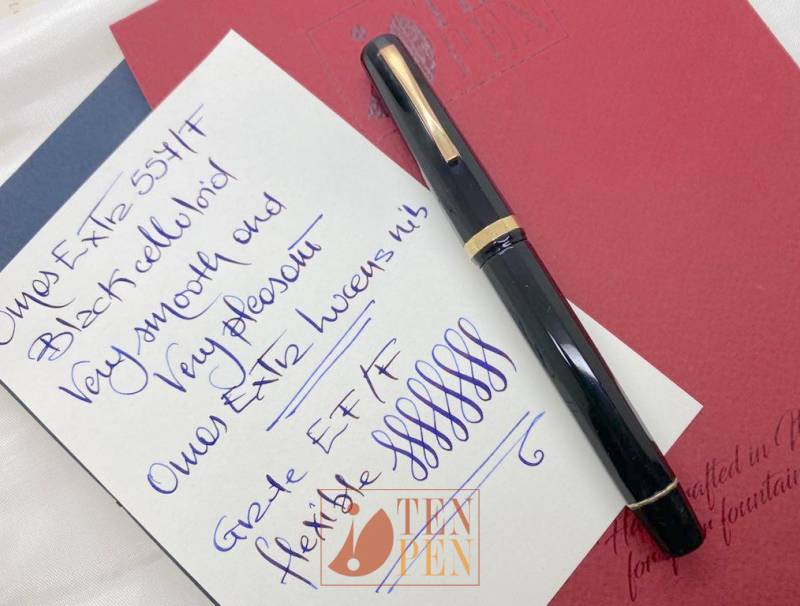 Omas Extra 557/F
Black celluloid
Very smooth and
Very pleasant
Omas Extra lucens nib
Grade EF/F
flexible
TEN
PEN
PEN
Handcrafted in
for your fountain